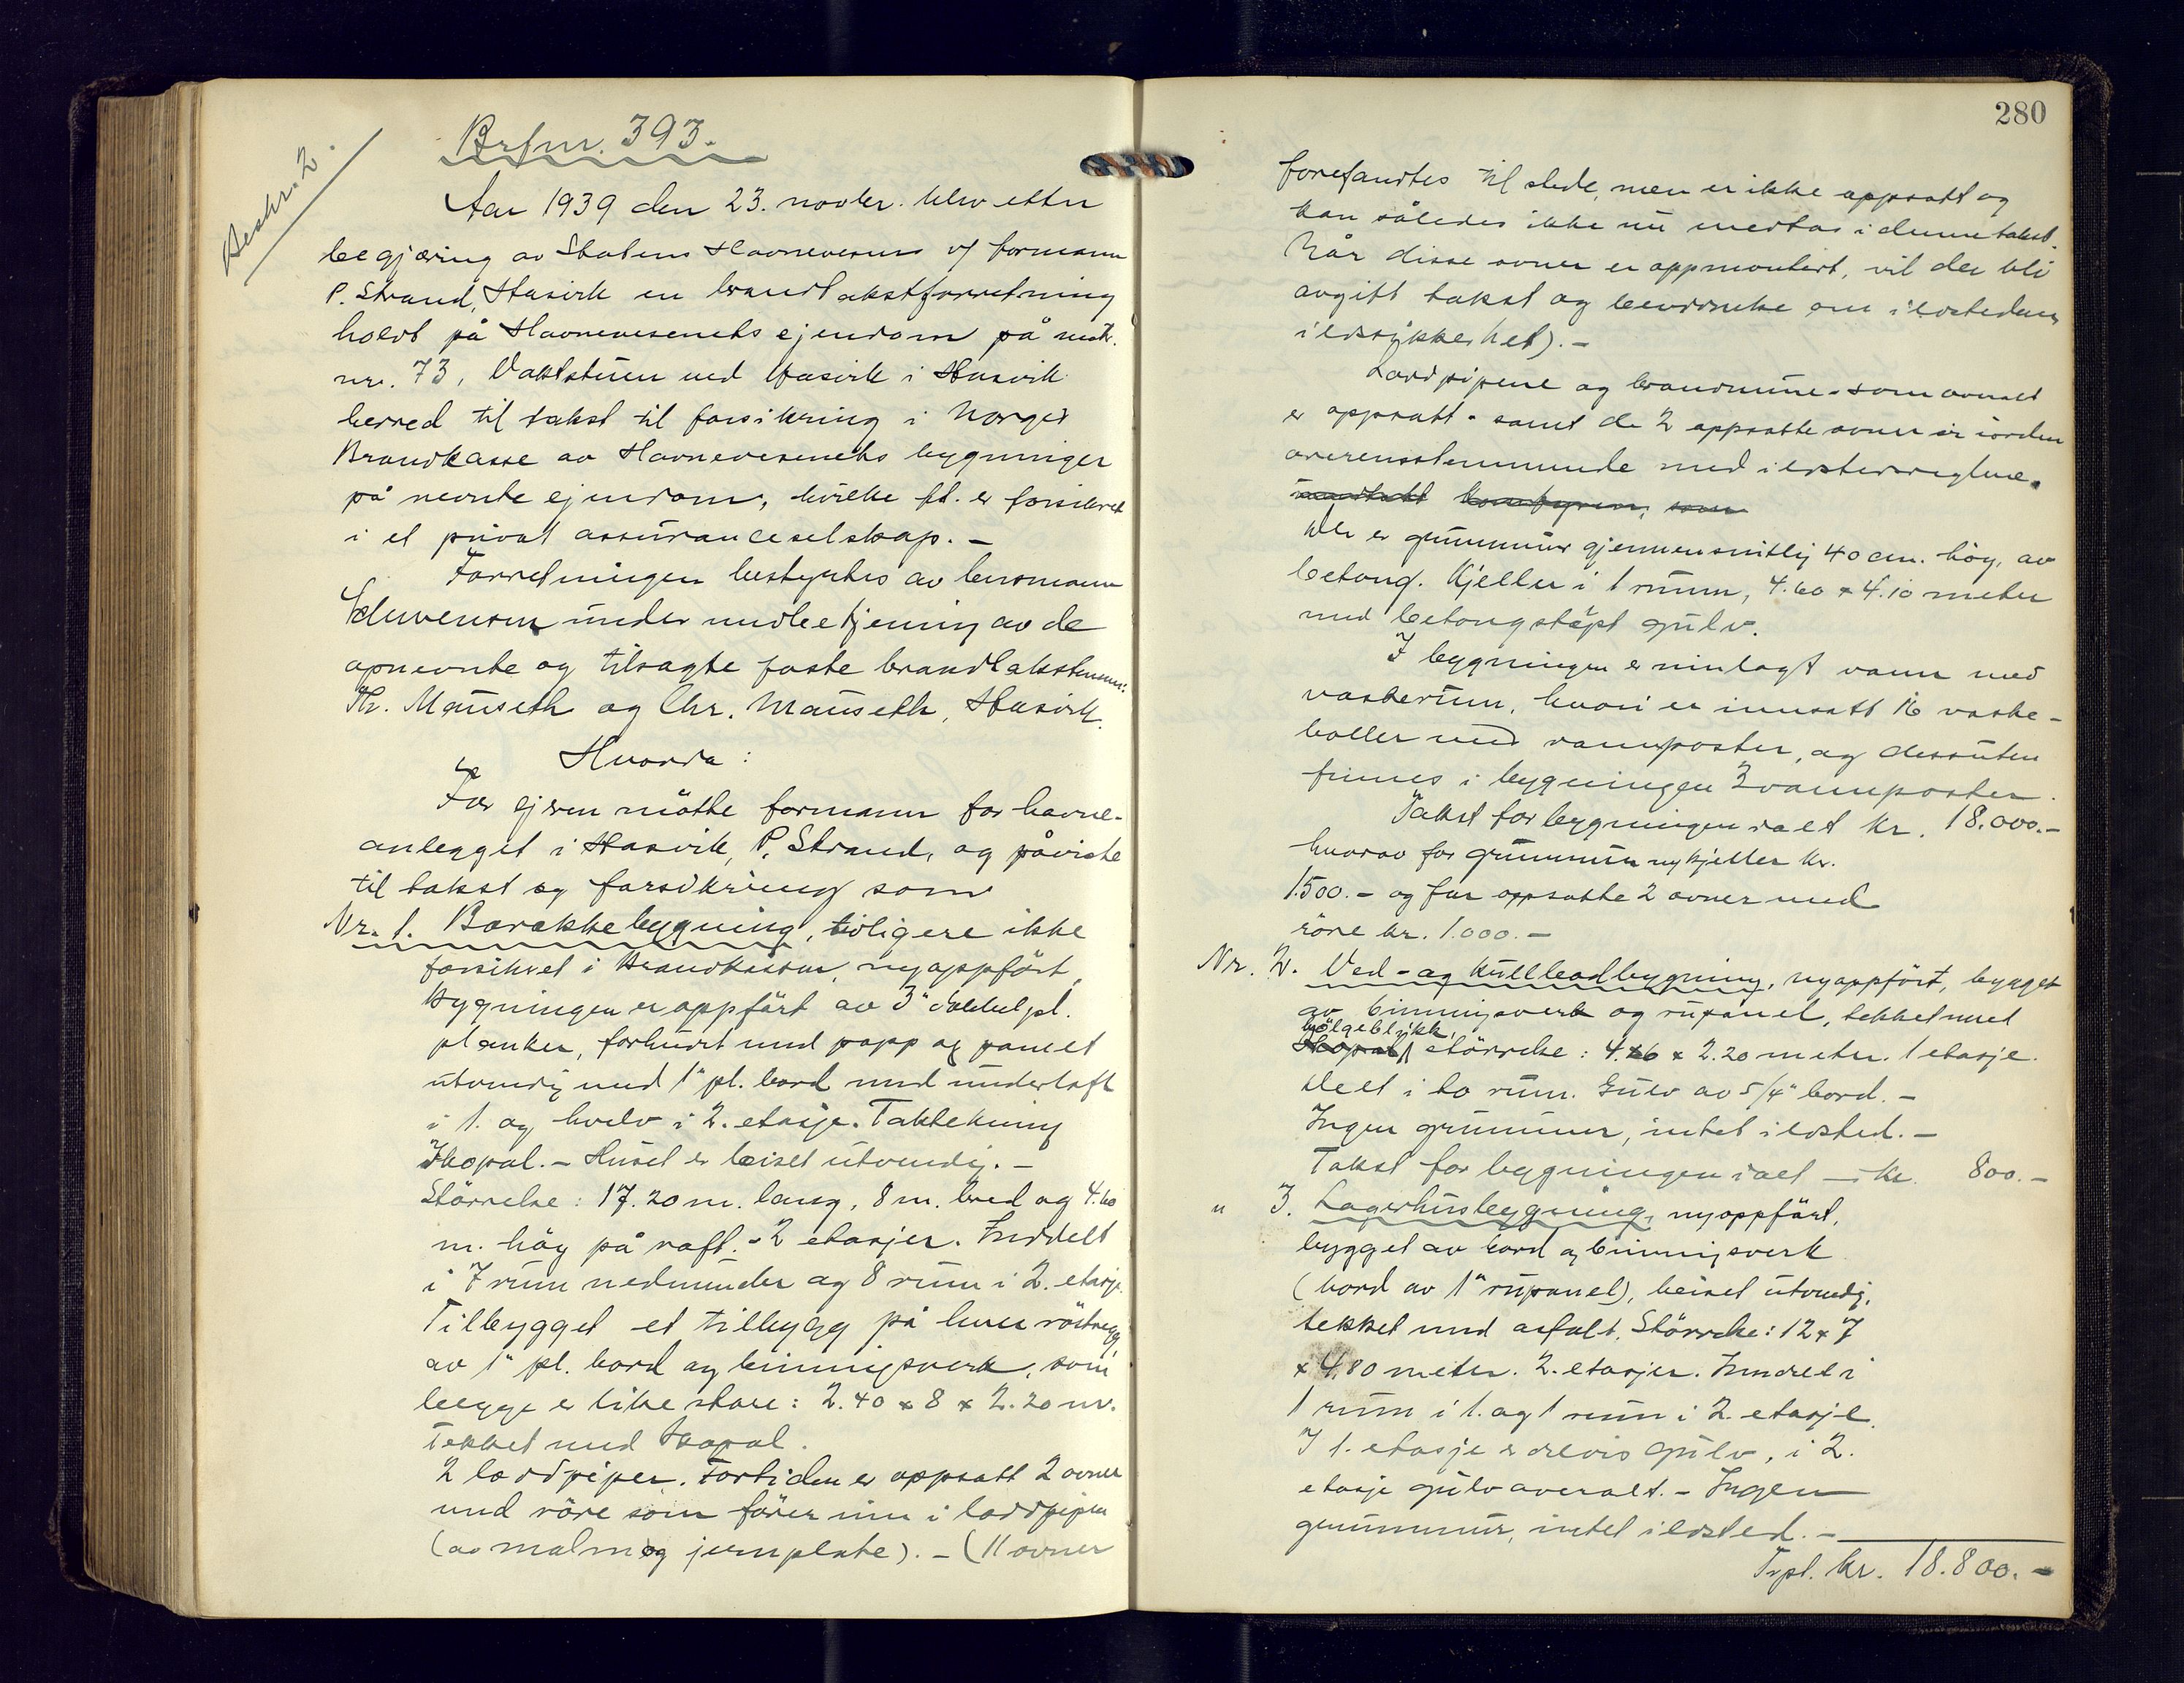 Beskr. 2.
Brfnr. 393.
Aar 1939 den 23. novbr. blev etter
begjæring av Statens Havnevesens v/ formann
P. Strand, Hasvik en brandtakstforretning
holdt på Havnevesenets ejendom på matr.
nr. 73, Vaktstuen ved Hasvik i Hasvik
herred til takst til forsikring i Norges
Brandkasse av Havnevesenets bygninger
på nevnte ejendom, hvilke ft. er forsikret
i et privat assuranceselskap. -
Forretningen bestyrtes av lensmann
under medbetjening av de
opnevnte og tilsagte faste brandtakstmenn:
Th. Mauseth og Chr. Mauseth, Hasvik.
Hvorda:
For ejeren mötte formann for havne-
anlegget i Hasvik, P. Strand, og påviste
til takst og forsikring som
Nr. 1. Barakkebygning, tidligere ikke
forsikret i Brandkassen, nyoppfört,
Bygningen er oppfört av 3" dobbelpl.
planker, forhudet med papp og panelt
utvendig med 1" pl. bord med underloft
i 1. og hvelv i 2. etasje. Taktekning
Ikopal. - Huset er beiset utvendig. -
Störrelse: 17.20 m. lang, 8 m. bred og 4.60
m. höy på raft. - 2 etasjer. Inddelt
i 7 rum nedenunder og 8 rum i 2. etasje.
Tilbygget et tilbygg på hver röstvegg
av 1" pl. bord og binningsverk, som
begge er like store: 2.40 x 8 x 2.20 m.
Tekket med Ikopal.
2 loddpiper. Fortiden er oppsatt 2 ovner
med röre som förer inn i loddpipen
(av malm og jernplate). - (11 ovner
280
forefandtes til stede, men er ikke oppsatt og
kan således ikke nu medtas i denne takst.
Når disse ovner er oppmontert, vil der bli
avgitt takst og beskrivelse om ildstedenes
ildsikkerhet). -
Loddpipene og brandmurene - som omalt
er oppsatt - samt de 2 oppsatte ovner er iorden
overensstemmende med ildstedsreglene.
Der er grunnmur gjennemsnitlig 40 cm. höy, av
betong. Kjeller i 1 rumm, 4.60 x 4.10 meter
med betongstöpt gulv.
I bygningen er innlagt vann med
vaskerum, hvori er innsatt 16 vaske-
boller med vannposter, og dessuten
finnes i bygningen 3 vannposter.
Takst for bygningen ialt kr. 18.000.-
hvorav for grunnmur og kjeller kr.
1.500.- og for oppsatte 2 ovner med
röre kr. 1.000.-
Nr. 2. Ved- og kullbodbygning, nyoppfört, bygget
av binningsverk og rupanel, tekket med
bölgeblikk,
Ikopal, störrelse: 4.26 x 2.20 meter. 1 etasje.
Delt i to rum. Gulv av 5/4" bord. -
Ingen grunnmur, intet ildsted. -
Takst for bygningen ialt - kr. 800.-
" 3. Lagerhusbygning, nyoppfört,
bygget av bord og binningsverk
(bord av 1" rupanel), beiset utvendig,
tekket med asfalt. Störrelse: 12 x 7
x 4,80 meter. 2. etasjer. Inndelt i
1 rum i 1. og 1 rum i 2. etasje.
I 1. etasje er delvis gulv, i 2.
etasje gulv overalt. - Ingen
grunnmur, intet ildsted. -
Trpt. kr. 18.800.-